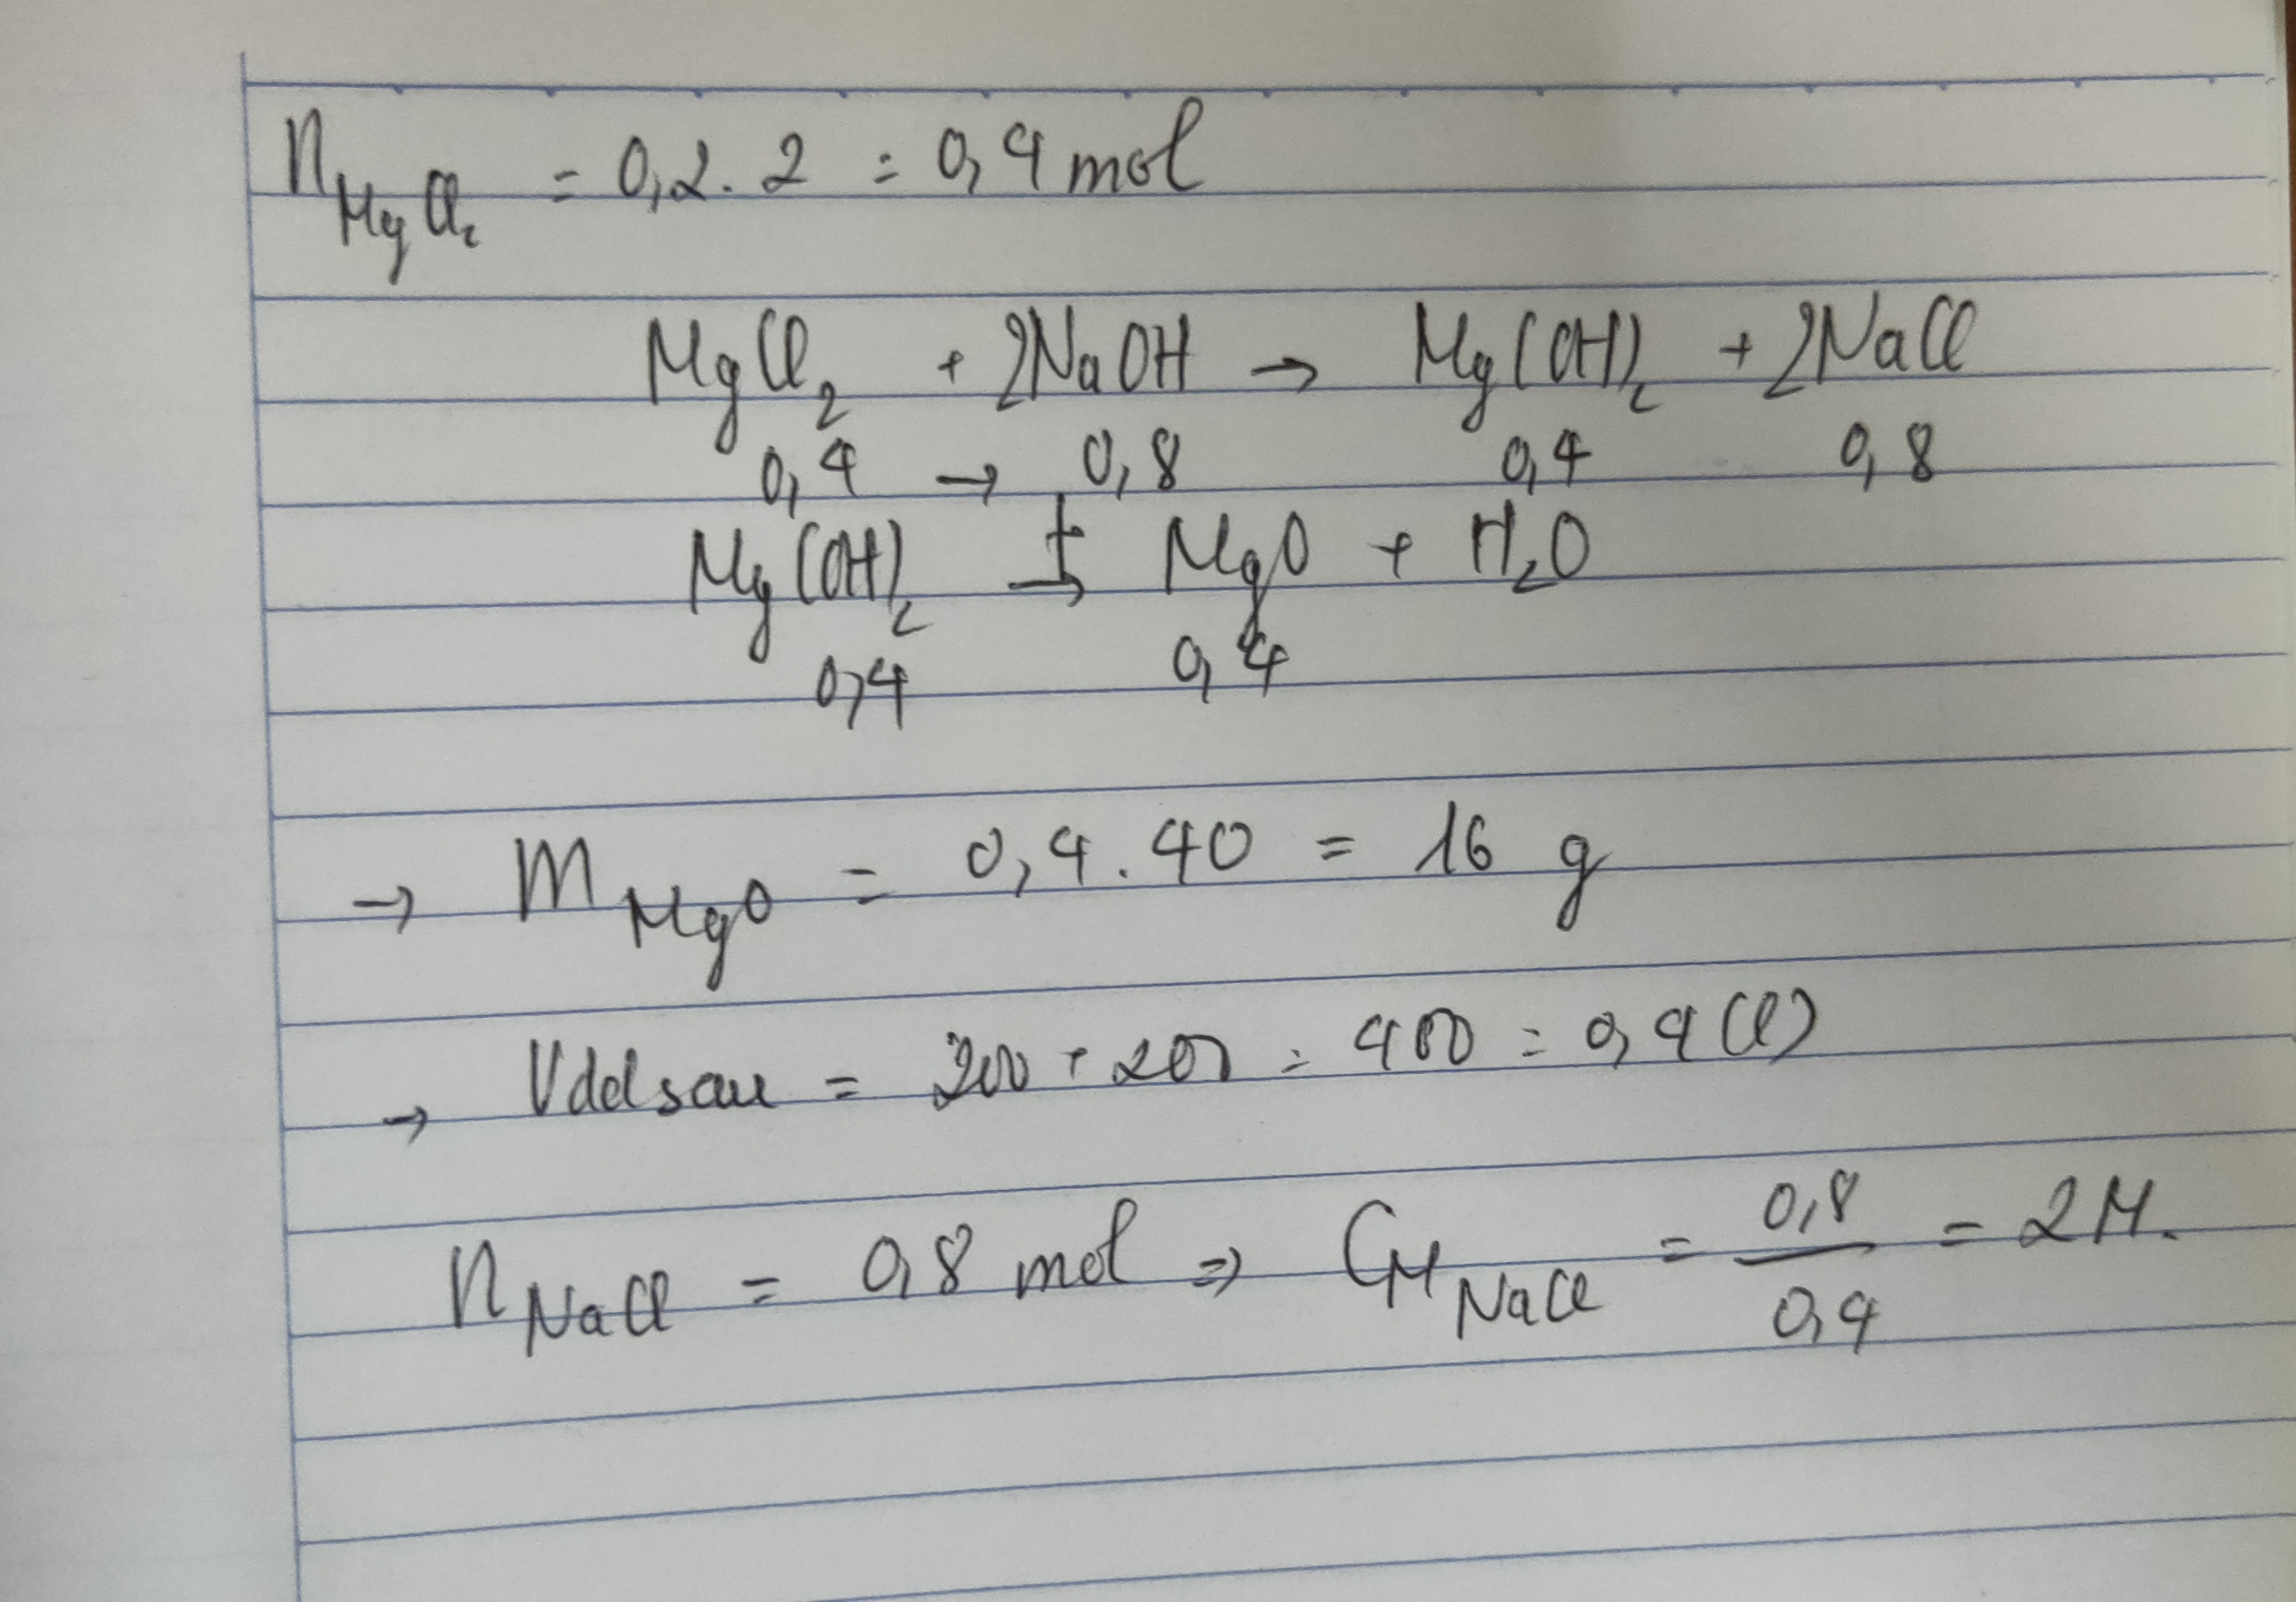 n MgCl₂ = 0,2 . 2 = 0,4 mol
MgCl₂ + 2NaOH → Mg(OH)₂ + 2NaCl
0,4 → 0,8 0,4 0,8
Mg(OH)₂ t→ MgO + H₂O
0,4 0,4
→ m MgO = 0,4 . 40 = 16 g
→ Vddsau = 200 + 200 = 400 = 0,4 (l)
n NaCl = 0,8 mol ⇒ CM NaCl = 0,8/0,4 = 2M.